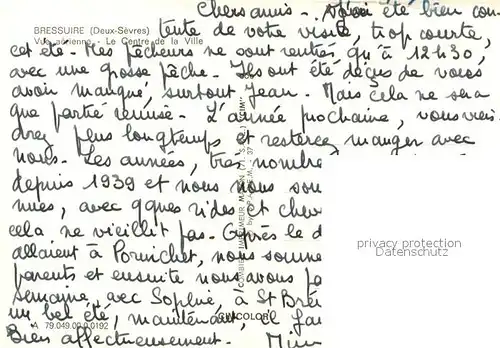 Chers amis - J'ai été bien con
BRESSUIRE (Deux-Sèvres)
tente de votre visite, trop courte,
Vue aérienne - Le Centre de la Ville
cet été - Mes pêcheurs ne sont rentrés qu'à 12h30,
avec une grosse pêche - Ils ont été déçus de vous
avoir manqué, surtout Jean. Mais cela ne sera
que partie remise - L'année prochaine, vous vien
drez plus longtemps et resterez manger avec
nous - Les années, très nombre
depuis 1939 et nous nous som
mes, avec qques rides et chev
cela ne vieillit pas - Après le d
allaient à Pornichet, nous somme
parents et ensuite nous avons pa
semaine, avec Sophie, à St Brév
un bel été, maintenant, ce
A 79.049.00.0.0192
Bien affectueusement -
COMBIER IMPRIMEUR MACON
CIM
privacy protection
Datenschutz